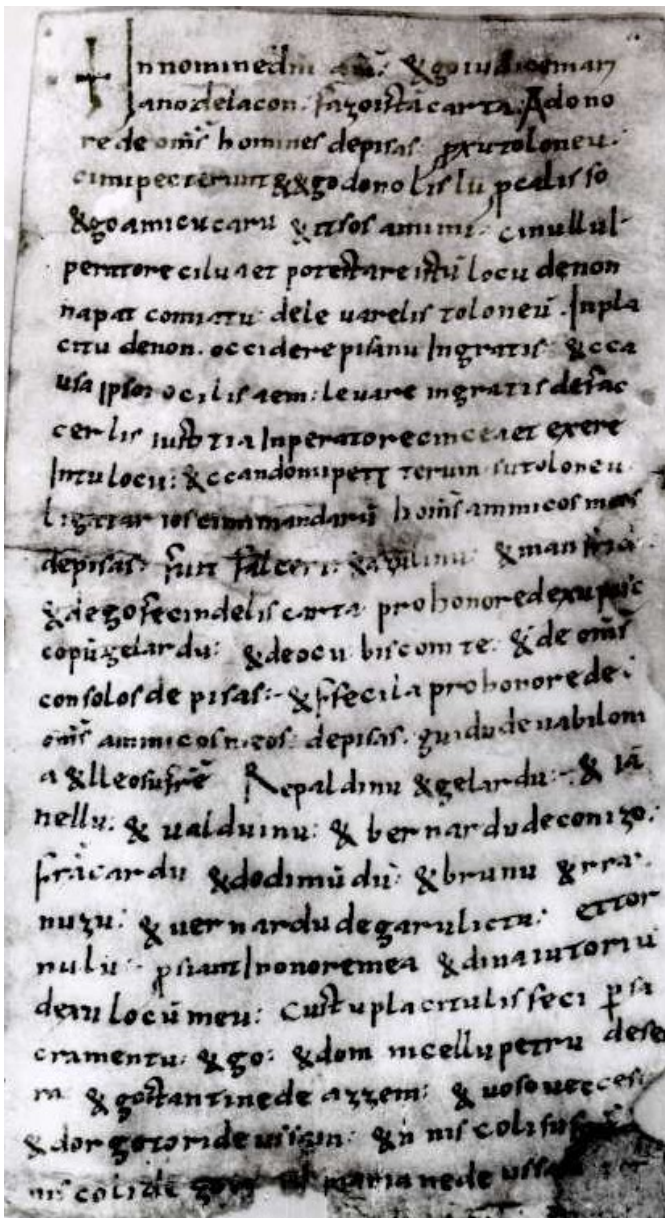 ✝ In nomine dni am̄: & go iudice mari
ano delacon. fazo istā carta: Ad ono
re de om̄s homines de pisas ꝓ xu toloneu:
ci mi pecterunt & & go donolislu ꝓ ca lis so
& go amicu caru & itsos a mimi: ci nullu I
peratore ci lu aet potestare istū locu de non
napat comiatu: de leuarelis toloneū. Inpla
citu denon. occidere pisanu Ingratis: & cca
usa ipsoro ci lis aem: leuare ingratis de fac
cerlis iustitia Inperatore ci nce aet exere
Intu locu: & ccando mi petterum su toloneu
ligatarios ci mi mandarū hom̄s ammicos meos
de pisas: fuit falceri: & azulinu: &
& dego fecindelis carta pro honore de xu pisc
copū gelardu: & de ocu biscomte: & de om̄s
consolos de pisas: & ffecila pro honore de:
om̄s ammicos meos: de pisas. guidu de uabiloni
a & lleo su frē Repaldinu & gelardu: & iā
nellu: & ualduinu: & bernardu de conizo:
frācardu & dodimūdū: & brunu & rra
nuzu: & uernardu de garulictu: ettor
nulu: ꝓ siant In onore mea & dinaiutoriu
dexu locū meu: Custu placitu lis feci ꝑ sa
cramentu: & go: & dom nicellu petru de se
ra & gostantine de azzem: & uoso ueccesu
& dorgotori de ussam: & n niscoli su
niscoli de mariane de ussam